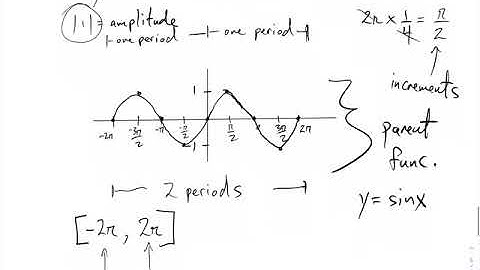 |1| = amplitude
one period one period
2π × 1/4 = π/2
increments
1
-2π -3π/2 -π -π/2 π/2 3π/2 2π
-1
parent
func.
y = sinx
2 periods
[-2π, 2π]